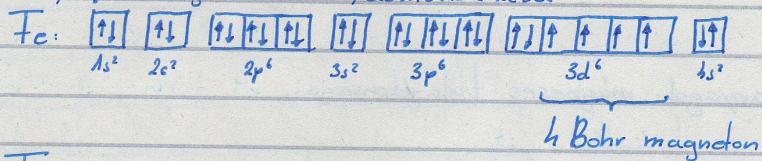 Fe: ↑↓ ↑↓ ↑↓ ↑↓ ↑↓ ↑↓ ↑↓ ↑↓ ↑↓ ↑↓ ↑ ↑ ↑ ↑ ↓↑
1s² 2s² 2p⁶ 3s² 3p⁶ 3d⁶ 4s²
4 Bohr magneton